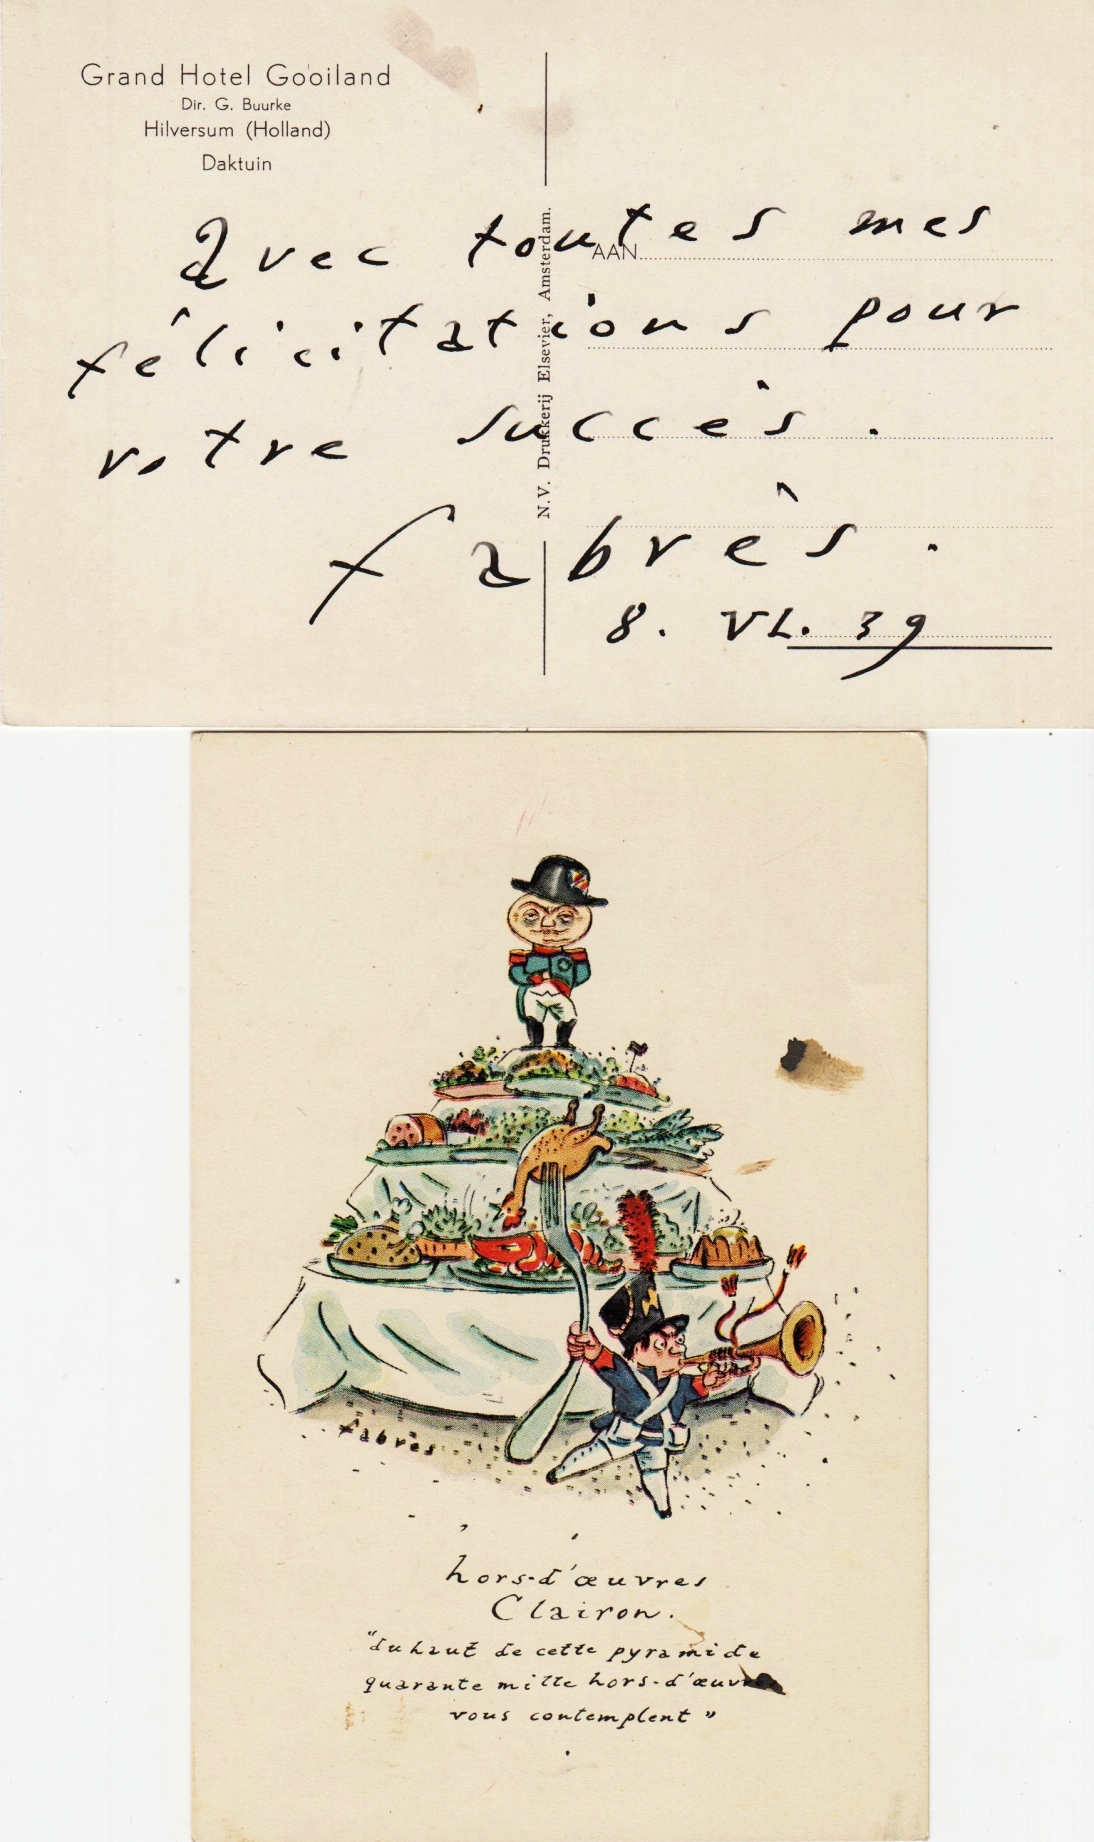 Grand Hotel Gooiland
Dir. G. Buurke
Hilversum (Holland)
Daktuin
Avec toutes mes
félicitations pour
votre succès.
fabrès.
8. VI. 39
AAN
N.V. Drukkerij Elsevier, Amsterdam.
fabrès
hors-d'œuvres
Clairon.
"du haut de cette pyramide
quarante mille hors-d'œuvres
vous contemplent"